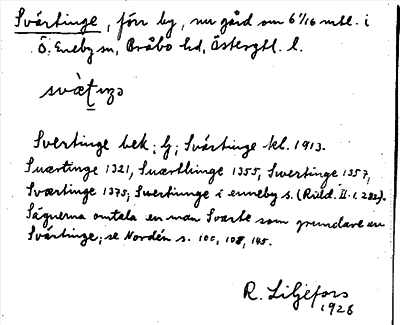 Svärtinge, förr by, nu gård om 6 1/16 mtl. i
Ö. Eneby sn, Bråbo hd, Östergtl. l.
Svertinge bek.; Svärtinge kl. 1913.
Suærtinge 1321, Suærthinge 1355, Swertinge 1357,
Sværtinge 1375; Swertiunge i enneby s. (Räld. II: 1, 282).
Sägnerna omtala en man Svarte som grundare av
Svärtinge; se Nordén s. 100, 108, 145.
R. Liljefors
1926